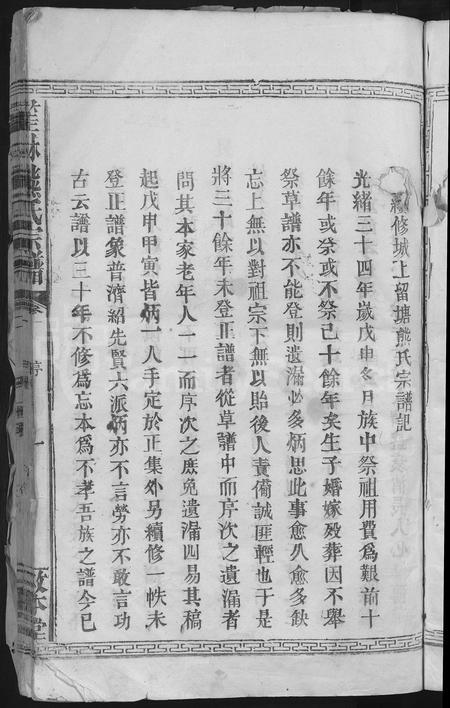 續修城上留塘熊氏宗譜記
光緒三十四年歲戊申冬日族中祭祖用費爲艱前十
餘年或祭或不祭已十餘年矣生子婚嫁殁葬因不舉
祭草譜亦不能登則遺漏必多炳思此事愈久愈多缺
忘上無以對祖宗下無以貽後人責備誠匪輕也于是
將三十餘年未登正譜者從草譜中而序次之遺漏者
問其本家老年人一一而序次之庶免遺漏四易其稿
起戊申甲寅皆炳一人手定於正集外另續修一帙未
登正譜象普濟紹先賢六派炳亦不言勞亦不敢言功
古云譜以三十年不修爲忘本爲不孝吾族之譜今已
熊氏宗譜
卷
序
一
敦本堂